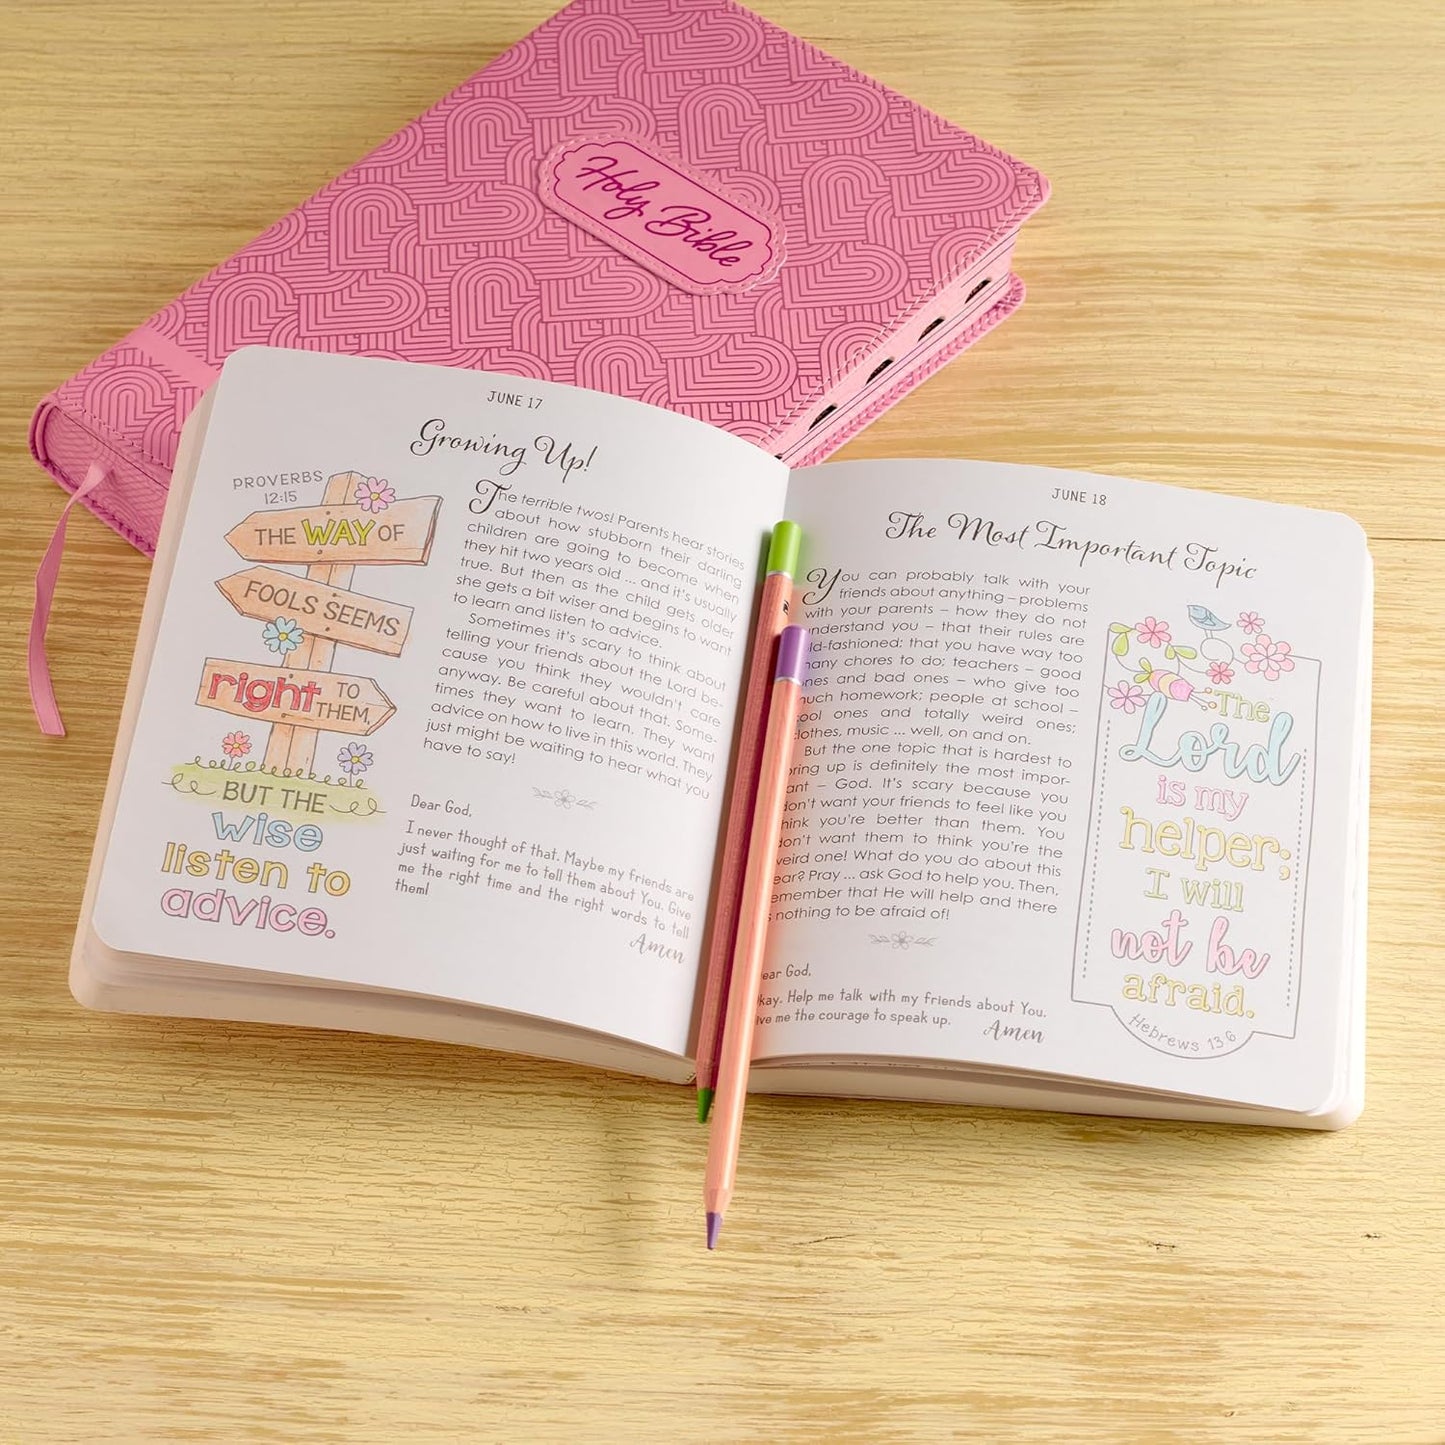 Holy Bible
JUNE 17
Growing Up!
PROVERBS
12:15
THE WAY OF
FOOLS SEEMS
right TO
THEM,
BUT THE
wise
listen to
advice.
The terrible twos! Parents hear stories
about how stubborn their darling
children are going to become when
they hit two years old ... and it's usually
true. But then as the child gets older
she gets a bit wiser and begins to want
to learn and listen to advice.
Sometimes it's scary to think about
telling your friends about the Lord be-
cause you think they wouldn't care
anyway. Be careful about that. Some-
times they want to learn. They want
advice on how to live in this world. They
just might be waiting to hear what you
have to say!
Dear God,
I never thought of that. Maybe my friends are
just waiting for me to tell them about You. Give
me the right time and the right words to tell
them!
Amen
JUNE 18
The Most Important Topic
You can probably talk with your
friends about anything – problems
with your parents – how they do not
understand you – that their rules are
ld-fashioned; that you have way too
any chores to do; teachers – good
nes and bad ones – who give too
uch homework; people at school –
ool ones and totally weird ones;
lothes, music ... well, on and on.
But the one topic that is hardest to
ring up is definitely the most impor-
ant – God. It's scary because you
on't want your friends to feel like you
hink you're better than them. You
on't want them to think you're the
eird one! What do you do about this
ear? Pray ... ask God to help you. Then,
emember that He will help and there
s nothing to be afraid of!
ear God,
kay. Help me talk with my friends about You.
ive me the courage to speak up.
Amen
The
Lord
is my
helper;
I will
not be
afraid.
Hebrews 13:6